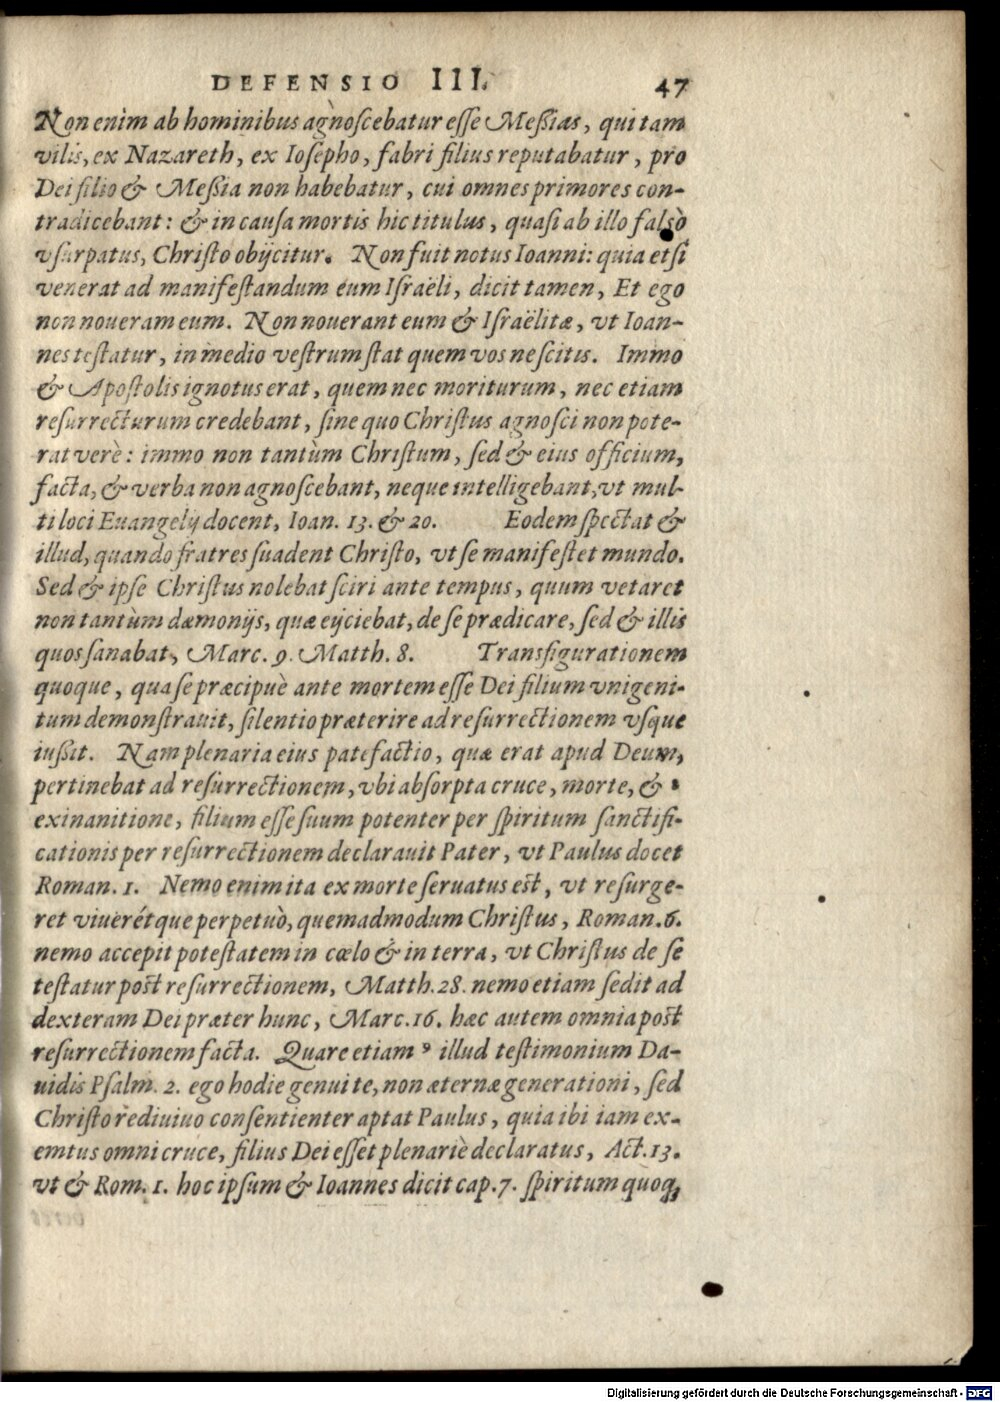 DEFENSIO III. 47
Non enim ab hominibus agnoſcebatur eſſe Meßias, qui tam
vilis, ex Nazareth, ex Ioſepho, fabri filius reputabatur, pro
Dei filio & Meßia non habebatur, cui omnes primores con-
tradicebant: & in cauſa mortis hic titulus, quaſi ab illo falsò
vſurpatus, Chriſto obijcitur. Non fuit notus Ioanni: quia etſi
venerat ad manifeſtandum eum Iſraëli, dicit tamen, Et ego
non noueram eum. Non nouerant eum & Iſraëlitæ, vt Ioan-
nes teſtatur, in medio veſtrum ſtat quem vos neſcitis. Immo
& Apoſtolis ignotus erat, quem nec moriturum, nec etiam
reſurrecturum credebant, ſine quo Chriſtus agnoſci non pote-
rat verè: immo non tantùm Chriſtum, ſed & eius officium,
facta, & verba non agnoſcebant, neque intelligebant, vt mul-
ti loci Euangelij docent, Ioan. 13. & 20. Eodem ſpectat &
illud, quando fratres ſuadent Chriſto, vt ſe manifeſtet mundo.
Sed & ipſe Chriſtus nolebat ſciri ante tempus, quum vetaret
non tantùm dæmonijs, quæ eijciebat, de ſe prædicare, ſed & illis
quos ſanabat, Marc. 9. Matth. 8. Transfigurationem
quoque, qua ſe præcipuè ante mortem eſſe Dei filium vnigeni-
tum demonſtrauit, ſilentio præterire ad reſurrectionem vſque
iußit. Nam plenaria eius patefactio, quæ erat apud Deum,
pertinebat ad reſurrectionem, vbi abſorpta cruce, morte, &
exinanitione, filium eſſe ſuum potenter per ſpiritum ſanctifi-
cationis per reſurrectionem declarauit Pater, vt Paulus docet
Roman. 1. Nemo enim ita ex morte ſeruatus eſt, vt reſurge-
ret viuerétque perpetuò, quemadmodum Chriſtus, Roman. 6.
nemo accepit poteſtatem in cœlo & in terra, vt Chriſtus de ſe
teſtatur poſt reſurrectionem, Matth. 28. nemo etiam ſedit ad
dexteram Dei præter hunc, Marc. 16. hæc autem omnia poſt
reſurrectionem facta. Quare etiam illud teſtimonium Da-
uidis Pſalm. 2. ego hodie genui te, non æternæ generationi, ſed
Chriſto rediuiuo conſentienter aptat Paulus, quia ibi iam ex-
emtus omni cruce, filius Dei eſſet plenariè declaratus, Act. 13.
vt & Rom. 1. hoc ipſum & Ioannes dicit cap. 7. ſpiritum quoq;
Digitalisierung gefördert durch die Deutsche Forschungsgemeinschaft - DFG